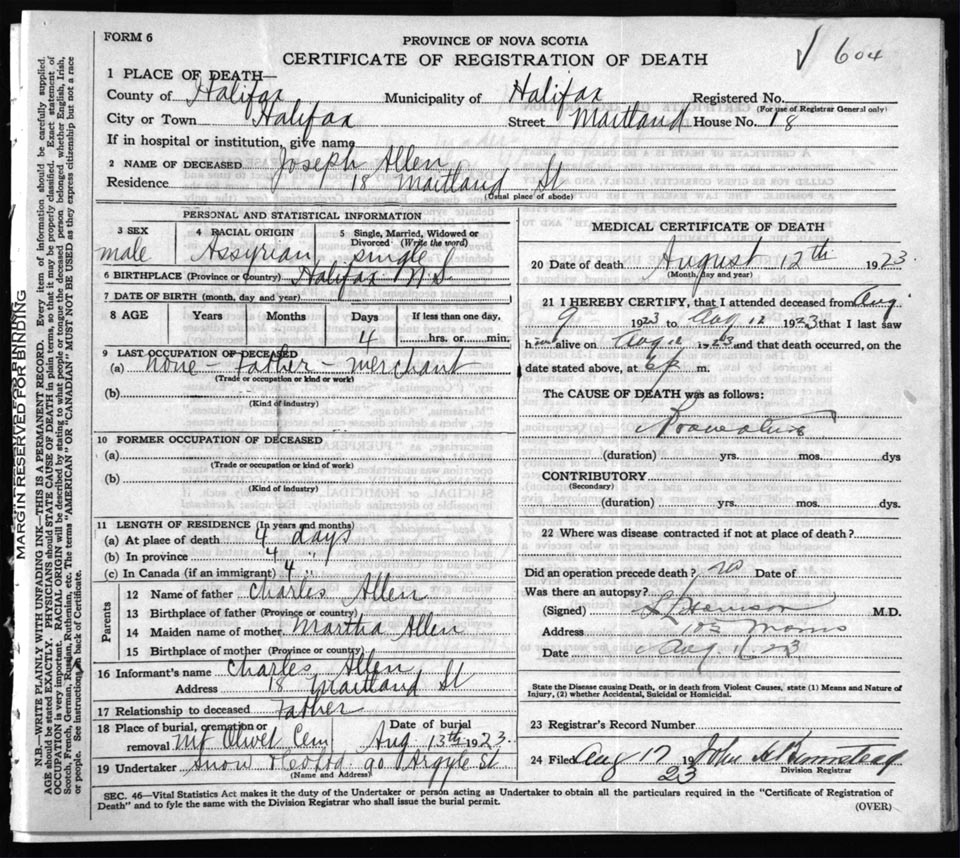 FORM 6
PROVINCE OF NOVA SCOTIA
CERTIFICATE OF REGISTRATION OF DEATH
√ 604
1 PLACE OF DEATH—
County of Halifax Municipality of Halifax Registered No.
(For use of Registrar General only)
City or Town Halifax Street Maitland House No. 18
If in hospital or institution, give name
2 NAME OF DECEASED Joseph Allen
Residence 18 Maitland St
(Usual place of abode)
PERSONAL AND STATISTICAL INFORMATION
3 SEX 4 RACIAL ORIGIN 5 Single, Married, Widowed or Divorced (Write the word)
male Assyrian single
6 BIRTHPLACE (Province or Country) Halifax N.S
7 DATE OF BIRTH (month, day and year)
8 AGE Years Months Days If less than one day,
4 hrs. or min.
9 LAST OCCUPATION OF DECEASED
(a) none - Father - merchant
(Trade or occupation or kind or work)
(b)
(Kind of industry)
10 FORMER OCCUPATION OF DECEASED
(a)
(Trade or occupation or kind or work)
(b)
(Kind of industry)
11 LENGTH OF RESIDENCE (In years and months)
(a) At place of death 4 days
(b) In province 4 "
(c) In Canada (if an immigrant) 4 "
Parents
12 Name of father Charles Allen
13 Birthplace of father (Province or country)
14 Maiden name of mother Martha Allen
15 Birthplace of mother (Province or country)
16 Informant's name Charles Allen
Address 18 Maitland St
17 Relationship to deceased Father
18 Place of burial, cremation or removal Mt Olivet Cem Date of burial Aug 13th 1923.
19 Undertaker Snow & Co Ltd 90 Argyle St
(Name and Address)
MEDICAL CERTIFICATE OF DEATH
20 Date of death August 12th 1923.
(Month, day and year)
21 I HEREBY CERTIFY, that I attended deceased from Aug
9 1923 to Aug 12 1923 that I last saw
him alive on Aug 12 1923 and that death occurred, on the
date stated above, at 6 p m.
The CAUSE OF DEATH was as follows:
(duration) yrs. mos. dys
CONTRIBUTORY.
(Secondary)
(duration) yrs. mos. dys.
22 Where was disease contracted if not at place of death?
Did an operation precede death? no Date of
Was there an autopsy?
(Signed) M.D.
Address Morris
Date Aug 11 23
State the Disease causing Death, or in death from Violent Causes, state (1) Means and Nature of
Injury, (2) whether Accidental, Suicidal or Homicidal.
23 Registrar's Record Number
24 Filed Aug 17 1923 John
Division Registrar
SEC. 46—Vital Statistics Act makes it the duty of the Undertaker or person acting as Undertaker to obtain all the particulars required in the "Certificate of Registration of
Death" and to fyle the same with the Division Registrar who shall issue the burial permit.
(OVER)
MARGIN RESERVED FOR BINDING
N.B.—WRITE PLAINLY WITH UNFADING INK—THIS IS A PERMANENT RECORD. Every item of information should be carefully supplied.
AGE should be stated EXACTLY. PHYSICIANS should STATE CAUSE OF DEATH in plain terms, so that it may be properly classified. Exact statement of
OCCUPATION is very important. RACIAL ORIGIN will be described by stating to what people or tongue the deceased person belonged whether English, Irish,
Scotch, French, German, Russian, Ruthenian, etc. The terms "AMERICAN" or "CANADIAN" MUST NOT BE USED as they express citizenship but not a race
or people. See instructions on back of Certificate.